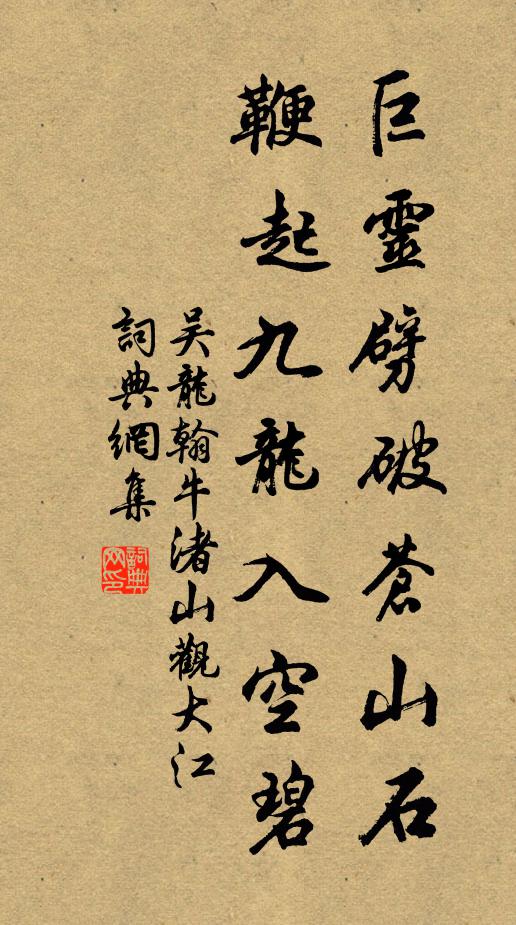 巨靈劈破蒼山石
鞭起九龍入空碧
吴龍翰牛渚山觀大江
詞典網集
詞典网印